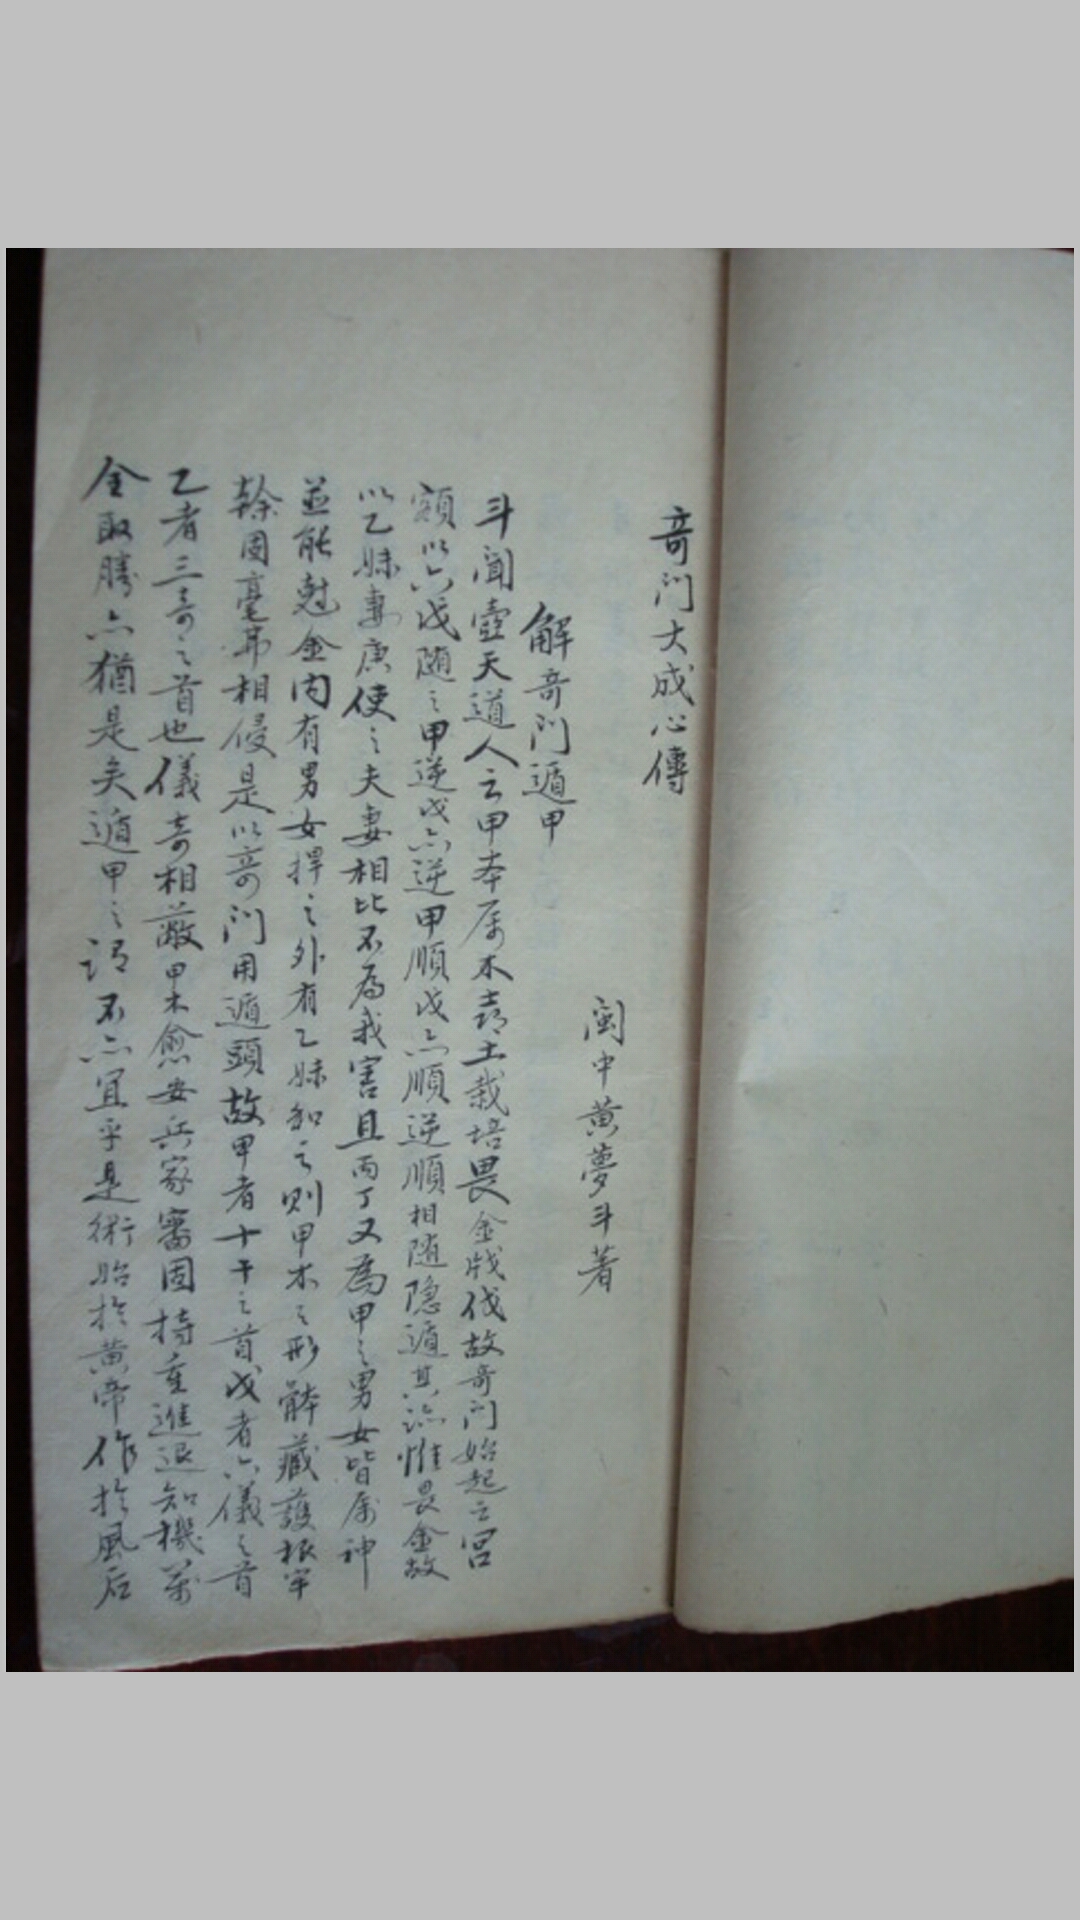 奇门大成心傳
閩中黄夢斗著
解奇门遁甲
斗聞壺天道人云甲本属木喜土栽培畏金戕伐故奇门始起之宮
額以六戊随之甲逆戊亦逆甲順戊亦順逆順相随隐遁其迹惟畏金故
以乙妹妻庚使之夫妻相比不為我害且丙丁又為甲之男女皆属神
並能尅金内有男女捍之外有乙妹和之则甲木之形体藏護根牢
幹固毫弗相侵是以奇门用遁頭故甲者十干之首戊者六儀之首
乙者三奇之首也儀奇相蔽甲木愈安兵家審固持重進退知機萬
全取勝亦猶是矣遁甲之謂不亦宜乎是術始於黄帝作於風后